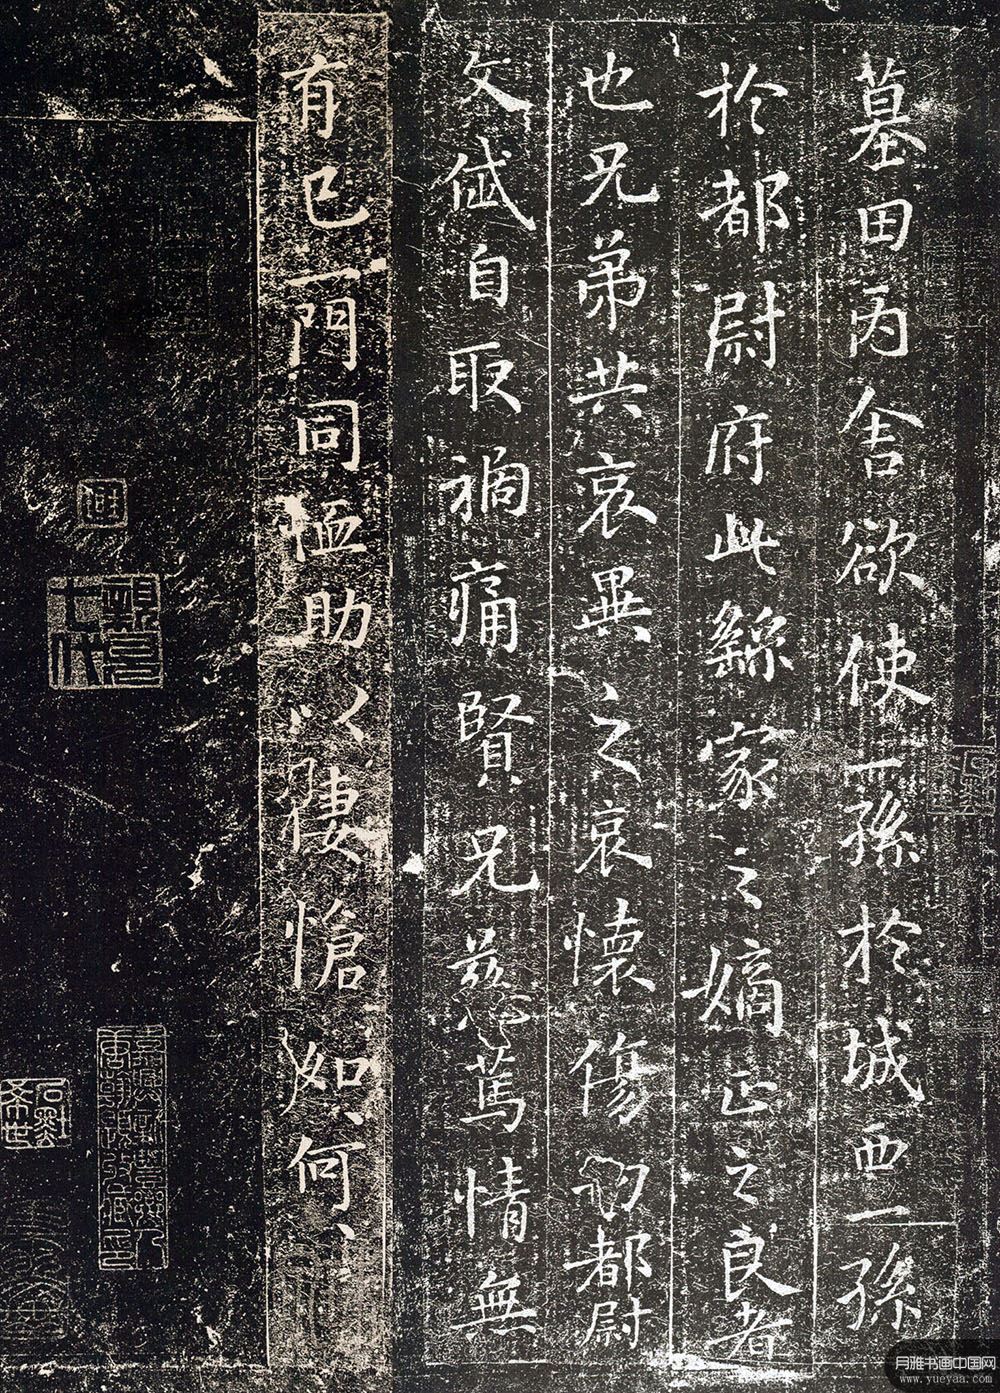 墓田丙舍欲使一孫於城西一孫
於都尉府此繇家之嫡正之良者
也兄弟共哀異之哀懷傷切都尉
文岱自取禍痛賢兄慈篤情無
有已一門同恤助以悽愴如、何、
月雅书画中国网
www.yueyaa.com